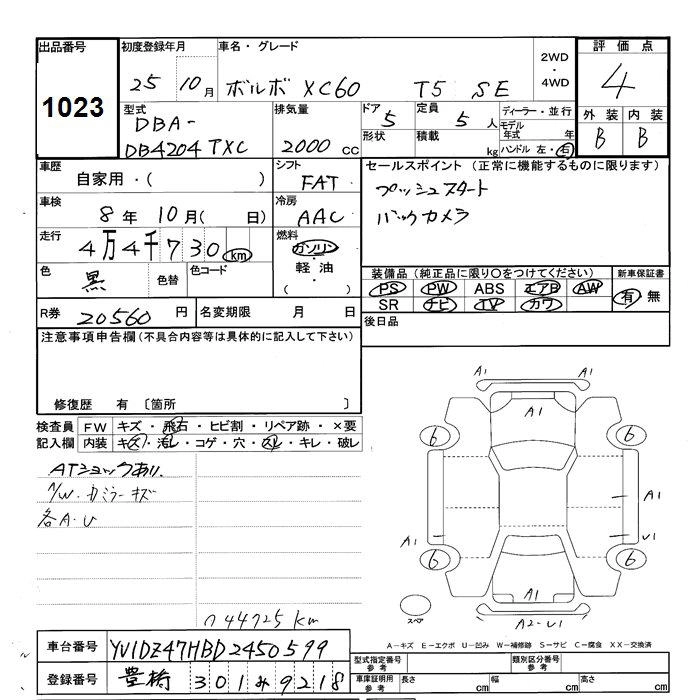 出品番号
1023
初度登録年月
25 10月
車名・グレード
ボルボ XC60 T5 SE
2WD
・
4WD
評価点
4
外装 内装
B B
型式
DBA-
DB4204TXC
排気量
2000 cc
ドア 5
形状
定員 5 人
積載 kg
ディーラー・並行
モデル年式 年
ハンドル 左・右
車歴
自家用・( )
シフト
FAT
セールスポイント (正常に機能するものに限ります)
プッシュスタート
バックカメラ
車検
8年 10月( 日)
冷房
AAC
走行
4万4千730 km
燃料
ガソリン
軽油
( )
色
黒
色替
色コード
装備品 (純正品に限り○をつけてください)
PS PW ABS エアB AW
SR ナビ TV カワ
新車保証書
有 無
R券 20560 円
名変期限 月 日
後日品
注意事項申告欄 (不具合内容等は具体的に記入して下さい)
修復歴 有 〔箇所 〕
検査員
記入欄
FW キズ・飛石・ヒビ割・リペア跡・×要
内装 キズ・汚レ・コゲ・穴・スレ・キレ・破レ
ATショックあり.
A/W・カミラーキズ
各A・U
44725km
A1
A1
6
6
A1
A1
U1
6
6
A1
A2-U1
スペア
A-キズ E-エクボ U-凹み W-補修跡 S-サビ C-腐食 XX-交換済
車台番号
YV1DZ47HBD2450599
登録番号
豊橋 301 み 9218
型式指定番号
参考
類別区分番号
参考
車庫証明用
参考
長さ cm
幅 cm
高さ cm